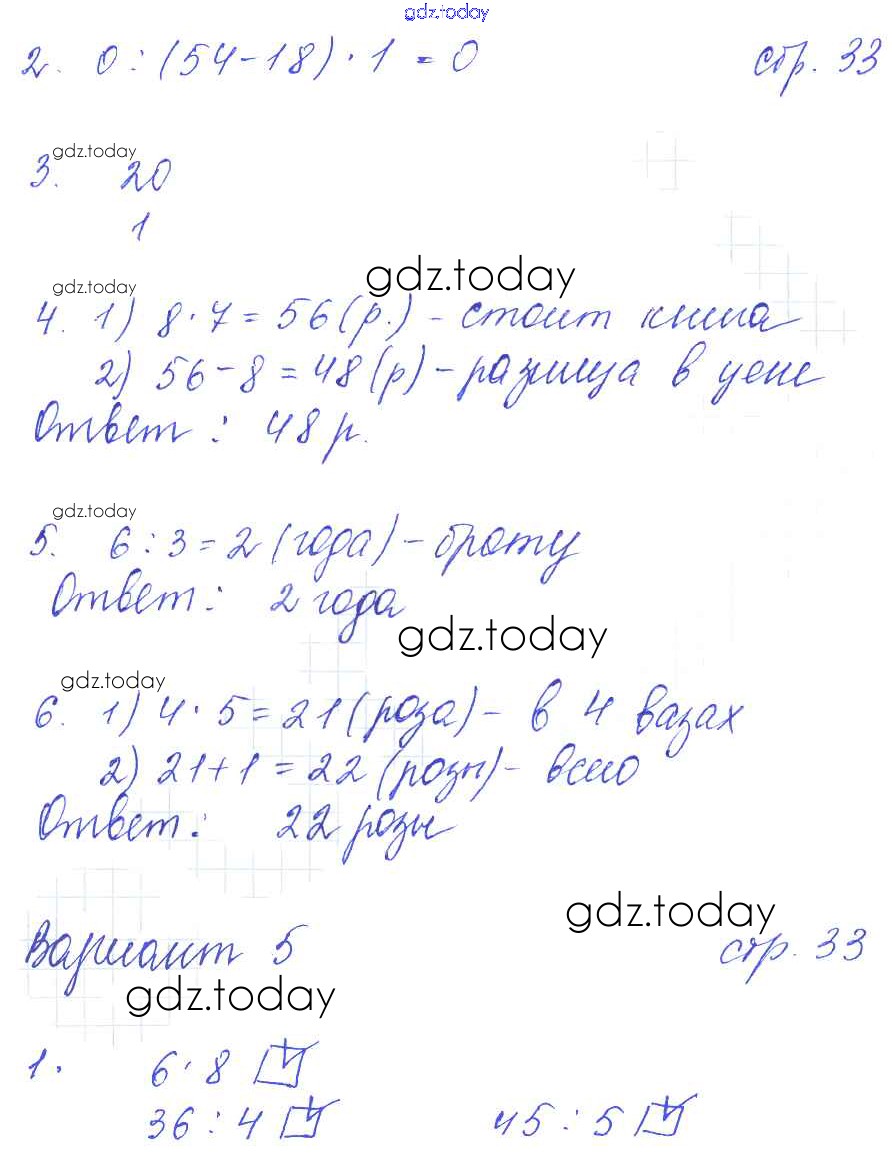 gdz.today
2. 0 : (54-18) · 1 = 0 стр. 33
gdz.today
3. 20
1
gdz.today
gdz.today
4. 1) 8 · 7 = 56 (р.) - стоит книга
2) 56 - 8 = 48 (р) - разница в цене
Ответ : 48 р.
gdz.today
5. 6 : 3 = 2 (года) - брату
Ответ : 2 года
gdz.today
gdz.today
6. 1) 4 · 5 = 21 (роза) - в 4 вазах
2) 21 + 1 = 22 (розы) - всего
Ответ : 22 розы
gdz.today
Вариант 5 стр. 33
gdz.today
1. 6 · 8
36 : 4 45 : 5